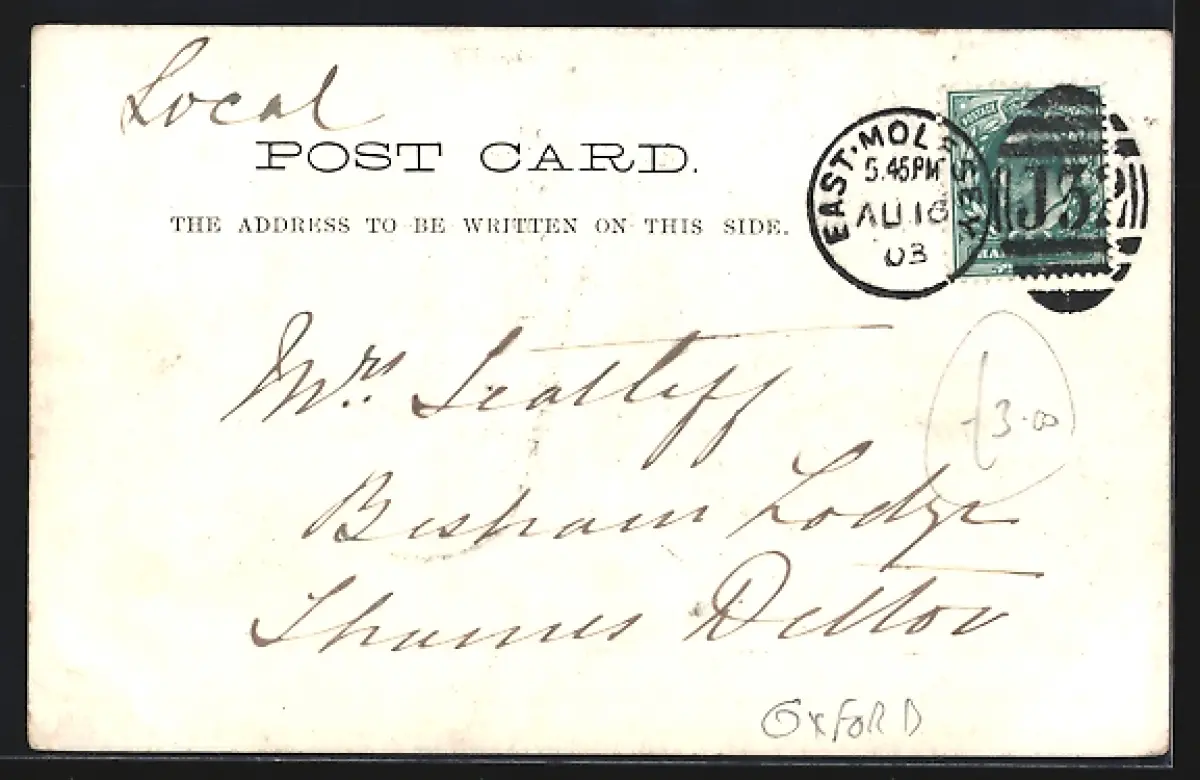 Local
POST CARD.
THE ADDRESS TO BE WRITTEN ON THIS SIDE.
EAST·MOLESEY
5.45PM
AU 16
03
J32
Mrs
Besham Lodge
Thames Ditton
3.00
OXFORD